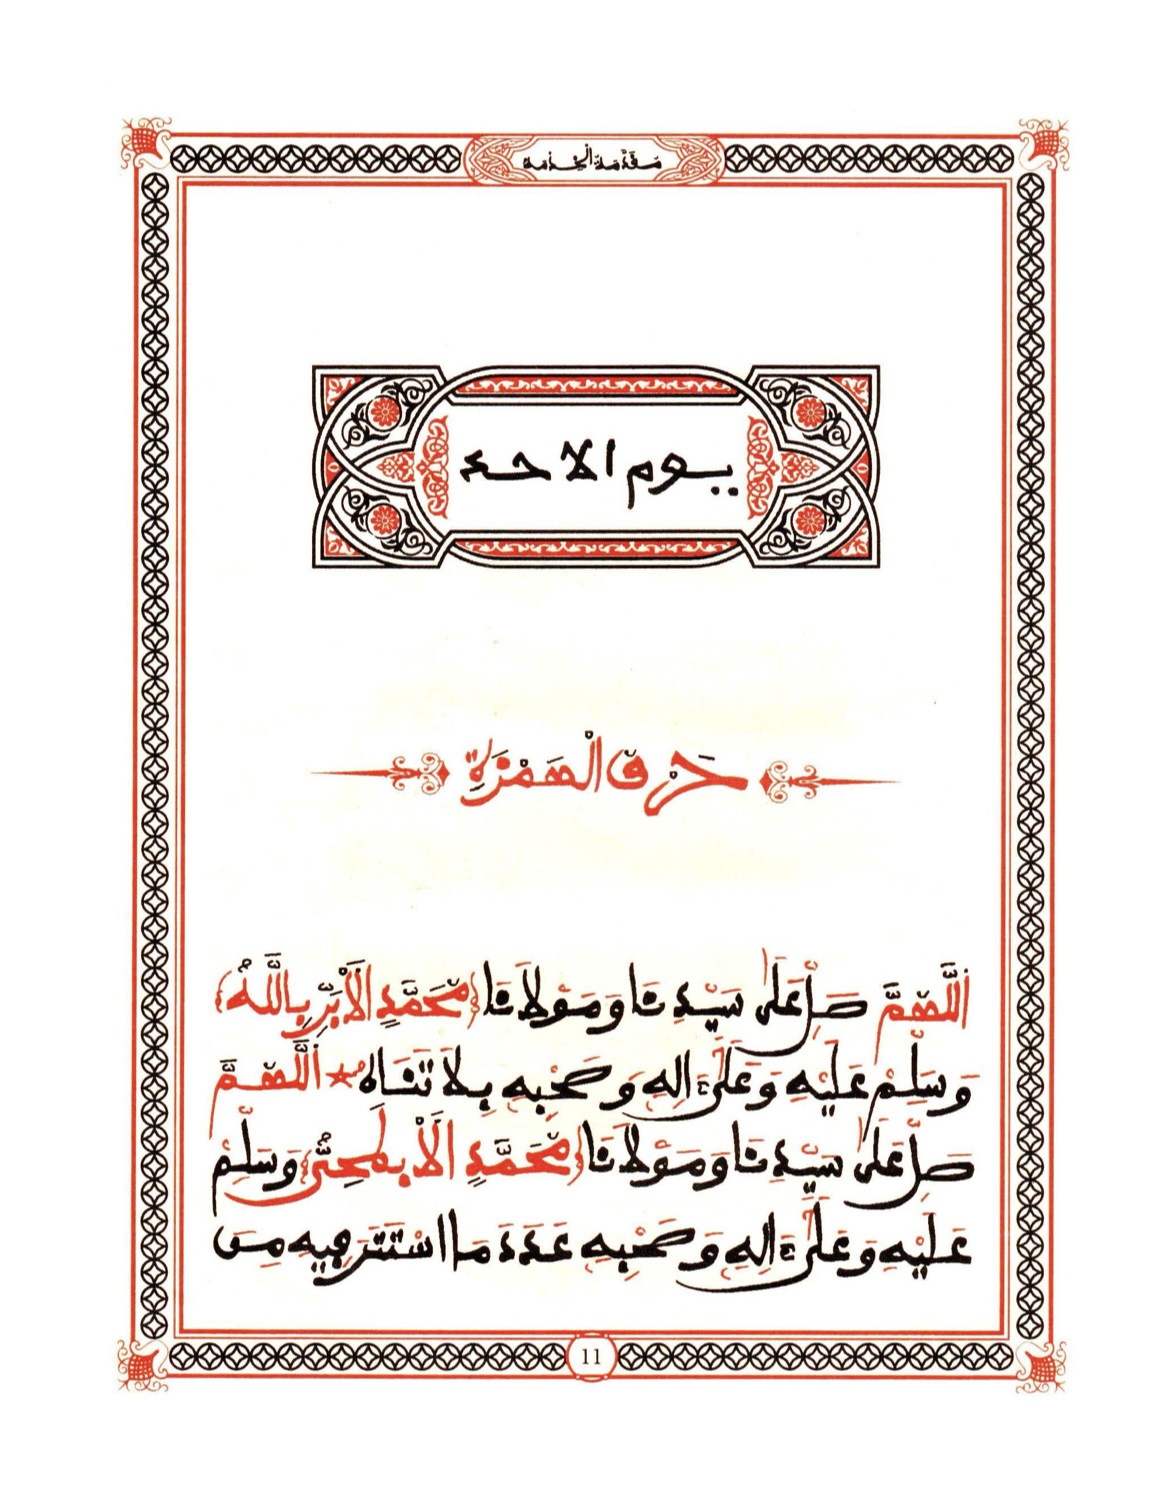 مقدّمة الخدمة
يوم الاحد
حَرْفُ الْهَمْزَةِ
اَللَّهُمَّ صَلِّ عَلَى سَيِّدِنَا وَمَوْلَانَا {مُحَمَّدٍ الْأَبَرِّ بِاللَّهِ}
وَسَلِّمْ عَلَيْهِ وَعَلَى ءَالِهِ وَصَحْبِهِ بِلَا تَنَاهٍ * اَللَّهُمَّ
صَلِّ عَلَى سَيِّدِنَا وَمَوْلَانَا {مُحَمَّدٍ الْأَبْطَحِيِّ} وَسَلِّمْ
عَلَيْهِ وَعَلَى ءَالِهِ وَصَحْبِهِ عَدَدَ مَا اسْتَتَرَ فِيهِ مِنْ
11